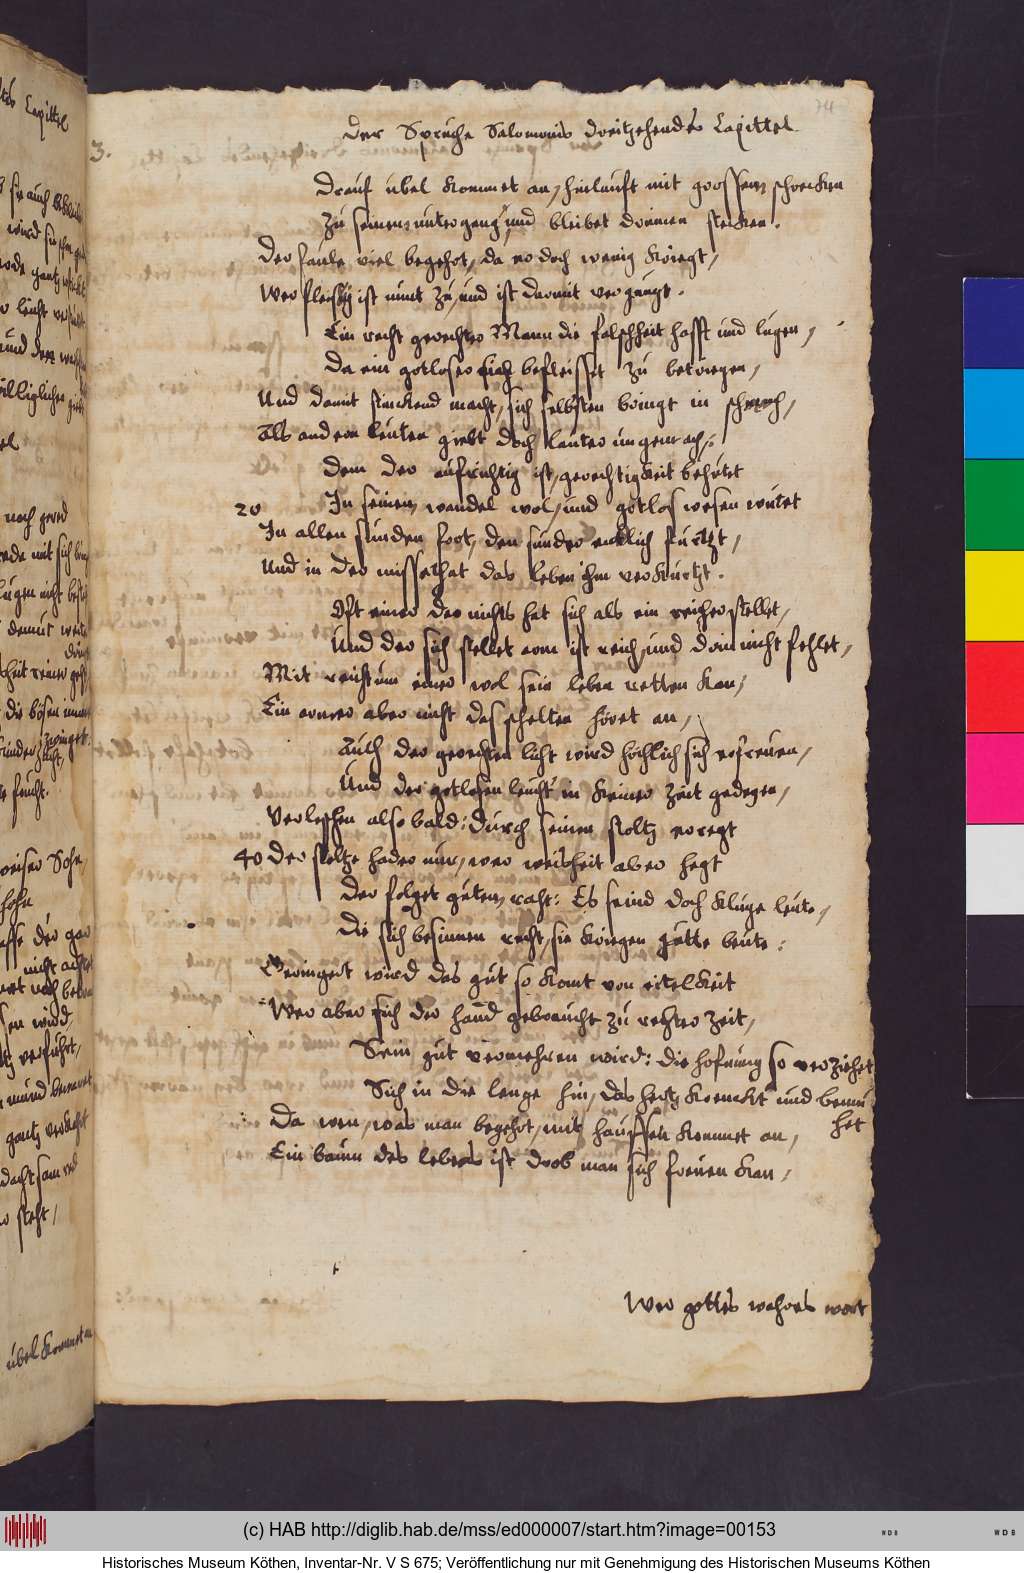 74
3.
Der Spruche Salomonis dreitzehendes Capittel
Drauf übel kommet an, hinlauft mit grossem schrecken
Zu seinem untergang, und bleibet drinnen stecken.
Der faule viel begehrt, da er doch wenig kriegt,
Wer fleissig ist nimt zu, und ist darmit vergnügt.
Ein recht gerechter Mann die falschheit hasst und lugen,
Da ein gotloser sich befleisset zu betriegen,
Und damit stinckend macht, sich selbsten bringt in schmach,
Als andern leuten giebt doch lauter ungemach.
Dem der aufrichtig ist, gerechtigkeit behütet
20 In seinem wandel wol, und gotlos wesen wütet
In allen sünden fort, den sünder endlich stürtzt,
Und in der missethat das leben ihm verkürtzt.
Oft einer der nichts hat sich als ein reicher stellet,
Und der sich stellet arm ist reich, und drin nicht fehlet,
Mit reichtum einer wol sein leben retten kan,
Ein armer aber nicht das schelten höret an,
Auch der gerechten licht wird höchlich sich erfreuen,
Und der gotlosen leucht in keiner Zeit gedegen,
Verleschen also bald: durch seinen stoltz erregt
40 Der stoltze hader nur, wer weisheit aber hegt
Der folget gutem raht: Es seind doch kluge leute,
Die sich besinnen recht, sie kriegen gutte beute:
Geringert wird das gut so komt von eitelkeit
Wer aber sich der hand gebraucht zu rechter Zeit,
Sein gut vermehren wird: die hofnung so verziehet
Sich in die lenge hin, das hertz krenckt und bemu
het
Da wen, was man begehrt, mit hauffen kommet an,
Ein baum des lebens ist drob man sich freuen kan,
Wer gottes wahres wort
(c) HAB http://diglib.hab.de/mss/ed000007/start.htm?image=00153
WDB
WDB
Historisches Museum Köthen, Inventar-Nr. V S 675; Veröffentlichung nur mit Genehmigung des Historischen Museums Köthen